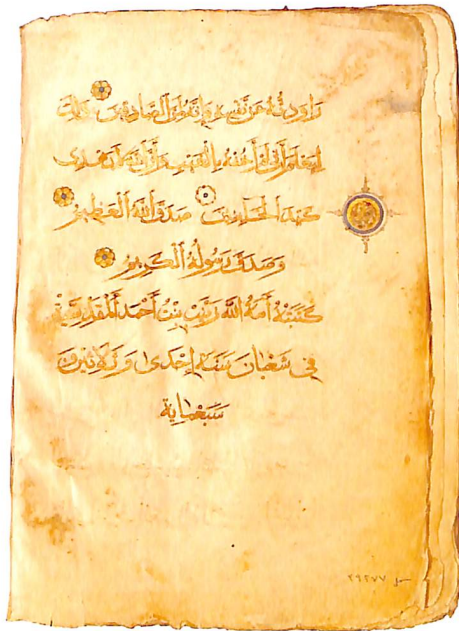 رَاوَدتُّهُ عَن نَّفْسِهِ وَإِنَّهُ لَمِنَ الصَّادِقِينَ ذَٰلِكَ
لِيَعْلَمَ أَنِّي لَمْ أَخُنْهُ بِالْغَيْبِ وَأَنَّ اللَّهَ لَا يَهْدِي
كَيْدَ الْخَائِنِينَ صَدَقَ اللَّهُ الْعَظِيمُ
وَصَدَقَ رَسُولُهُ الْكَرِيمُ
كَتَبَتْهُ أَمَةُ اللَّهِ زَيْنَبُ بِنْتُ أَحْمَدَ الْمَقْدِسِيَّةُ
فِي شَعْبَانَ سَنَةَ إِحْدَى وَثَلَاثِينَ
سَبْعِمِايَة
سل ٢٩٢٧٧